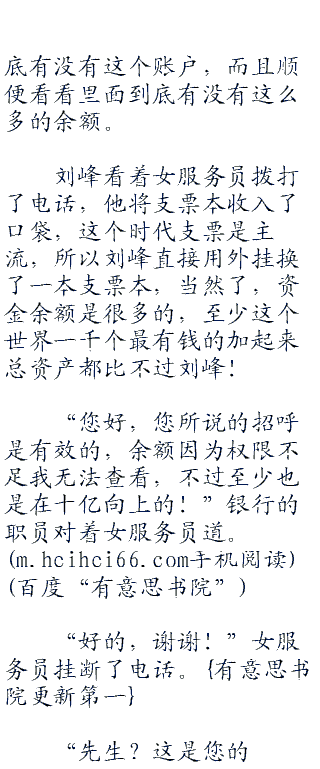 底有没有这个账户，而且顺
便看看里面到底有没有这么
多的余额。
刘峰看着女服务员拨打
了电话，他将支票本收入了
口袋，这个时代支票是主
流，所以刘峰直接用外挂换
了一本支票本，当然了，资
金余额是很多的，至少这个
世界一千个最有钱的加起来
总资产都比不过刘峰！
“您好，您所说的招呼
是有效的，余额因为权限不
足我无法查看，不过至少也
是在十亿向上的！”银行的
职员对着女服务员道。
(m.hcihci66.com手机阅读)
(百度“有意思书院”)
“好的，谢谢！”女服
务员挂断了电话。{有意思书
院更新第一}
“先生？这是您的